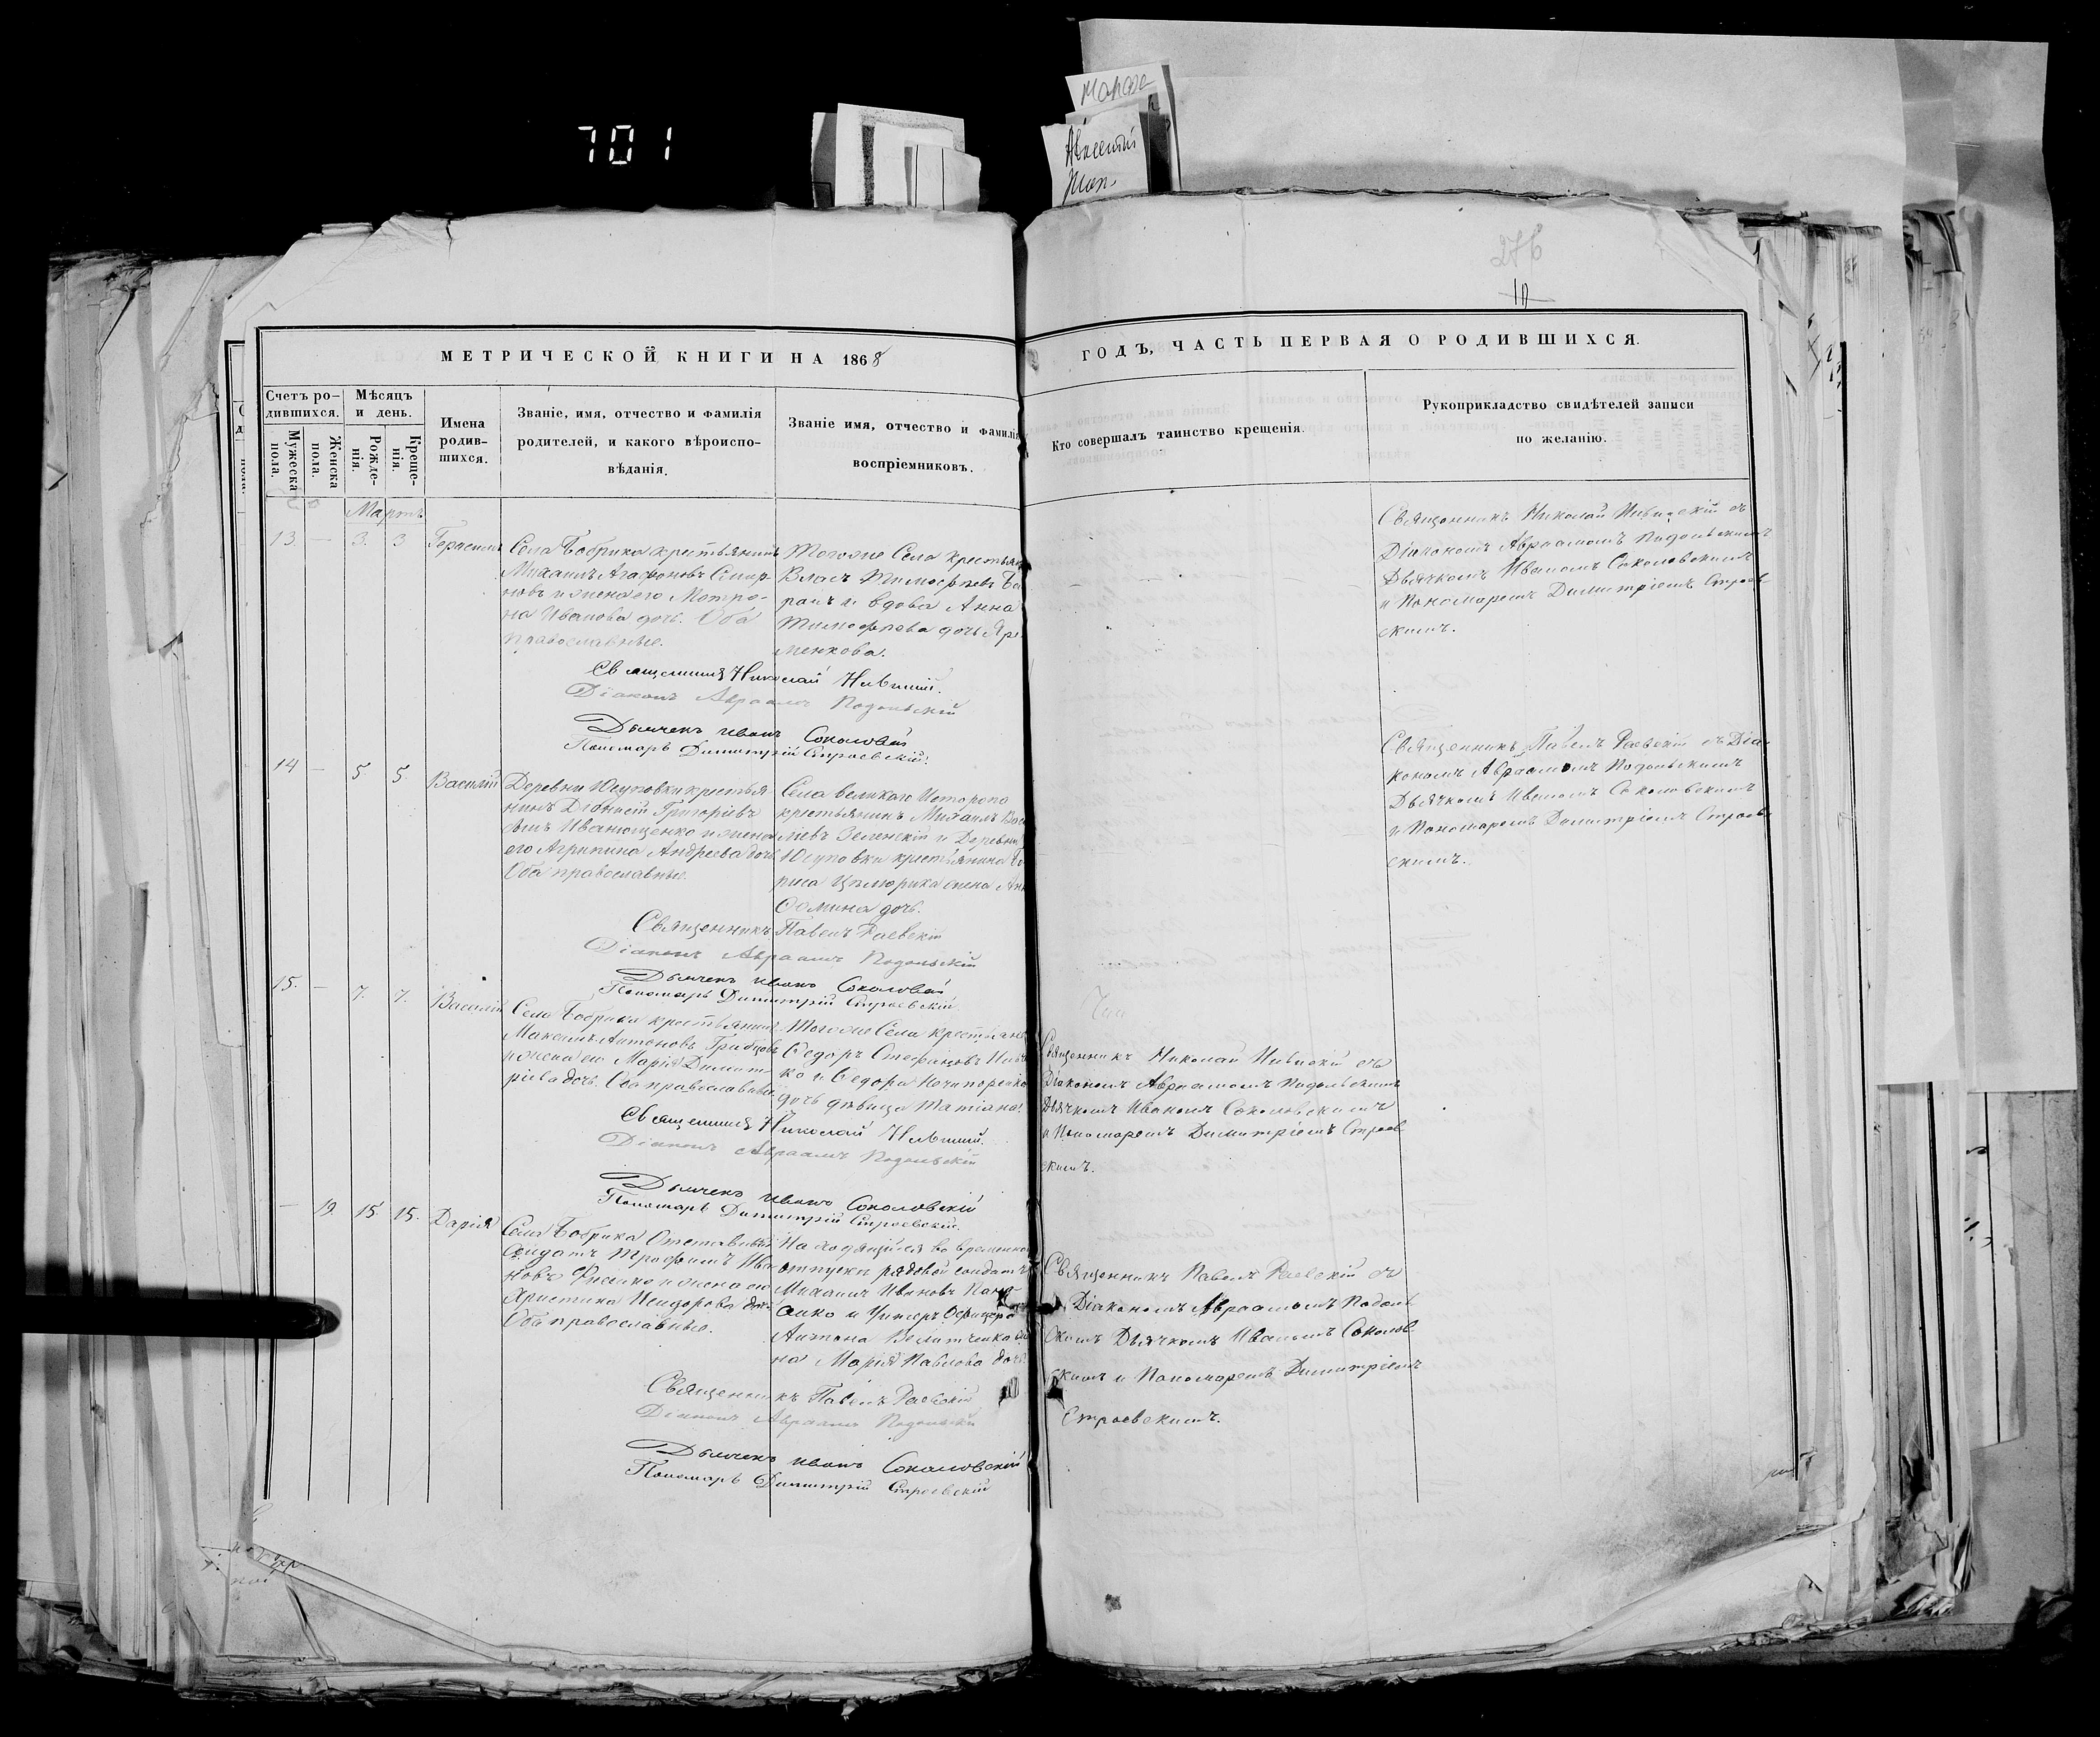 701
Мартъ
276
10
МЕТРИЧЕСКОЙ КНИГИ НА 1868
ГОДЪ, ЧАСТЬ ПЕРВАЯ О РОДИВШИХСЯ.
Счетъ ро-
дившихся.
Мужеска
пола.
Женска
пола.
Мѣсяцъ
и день.
Рожде-
нія.
Креще-
нія.
Имена
родив-
шихся.
Званіе, имя, отчество и фамилія
родителей, и какого вѣроиспо-
вѣданія.
Званіе имя, отчество и фамилія
воспріемниковъ.
Кто совершалъ таинство крещенія.
Рукоприкладство свидѣтелей записи
по желанію.
13. — 3. 3 Герасимъ
Села Бобрика крестьянинъ
Михаилъ Агафоновъ
новъ и жена его Мотро-
на Иванова дочь. Оба
православные.
Тогоже Села крестьян
Власъ Тимофѣевъ
ранъ и вдова Анна
Тимофѣева дочь Яре-
менкова.
Священникъ Николай
Діаконъ Авраамъ Подольскій
Дьячекъ Иванъ Соколовскій
Пономарь Димитрій Строевскій.
Священникъ Николай съ
Діакономъ Авраамомъ Подольскимъ
Дьячкомъ Иваномъ Соколовскимъ
и Пономаремъ Димитріемъ Строев-
скимъ.
14 — 5. 5. Василій
Деревни Юсуповки крестья
нинъ Діонисій Григорьевъ
Иванющенко и жена
его Агрипина Андреева дочь
Оба православные.
Села великаго Исторопа
крестьянинъ Михаилъ Васи
ліевъ Зеленскій и Деревни
Юсуповки крестьянина Бо
риса жена Анн
Ѳомина дочь.
Священникъ Павелъ Раевскій
Діаконъ Авраамъ Подольскій
Дьячекъ Иванъ Соколовскій
Пономарь Димитрій Строевскій
Священникъ Павелъ Раевскій съ Діа-
кономъ Авраамомъ Подольскимъ
Дьячкомъ Иваномъ Соколовскимъ
и Пономаремъ Димитріемъ Строев-
скимъ.
15. — 7. 7. Василій
Села Бобрика крестьянинъ
Максимъ Антоновъ
и жена его Марія Димит-
ріева дочь. Оба православные.
Тогоже Села крестьян
Ѳедоръ Стефановъ
ко и Ѳедора Ничипоренко
дочь дѣвица Татіана.
Священникъ Николай
Діаконъ Авраамъ Подольскій
Дьячекъ Иванъ Соколовскій
Пономарь Димитрій Строевскій.
Священникъ Николай съ
Діакономъ Авраамомъ Подольскимъ
Дьячкомъ Иваномъ Соколовскимъ
и Пономаремъ Димитріемъ Строев-
скимъ.
— 19. 15. 15. Дарія
Села Бобрика Отставный
Солдатъ Трофимъ Ива
новъ и жена его
Христина Исидорова дочь
Оба православные.
Находящійся во временномъ
отпускѣ рядовой солдатъ
Михаилъ Ивановъ
и Унтеръ Офицера
Антона
на Марія Павлова дочь
Священникъ Павелъ Раевскій
Діаконъ Авраамъ Подольскій
Дьячекъ Иванъ Соколовскій
Пономарь Димитрій Строевскій
Священникъ Павелъ Раевскій съ
Діакономъ Авраамомъ Подоль-
скимъ Дьячкомъ Иваномъ Соколов-
скимъ и Пономаремъ Димитріемъ
Строевскимъ.